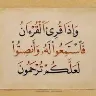 وَإِذَا قُرِئَ الْقُرْءَانُ
فَاسْتَمِعُوا لَهُ وَأَنصِتُوا
لَعَلَّكُمْ تُرْحَمُونَ